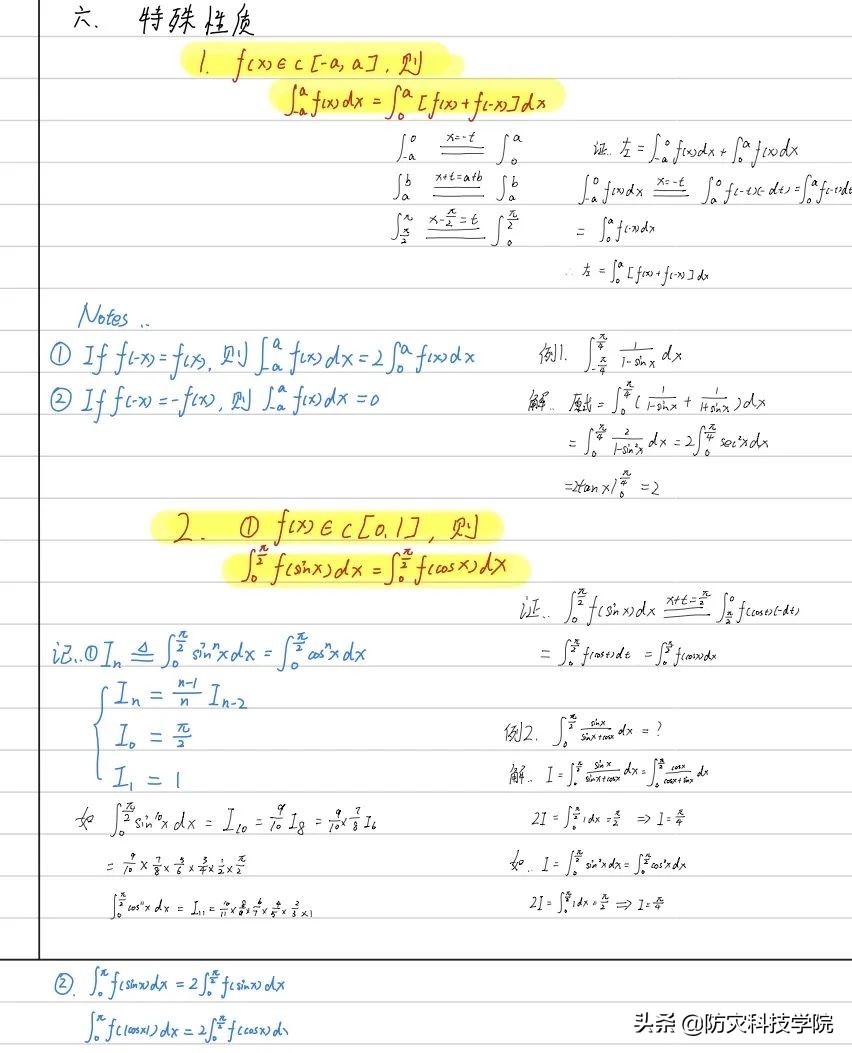 六. 特殊性质
1. f(x)∈C[-a,a], 则
∫_{-a}^{a} f(x)dx = ∫_0^a [f(x)+f(-x)]dx
∫_{-a}^0 \xlongequal{x=-t} ∫_0^a
∫_a^b \xlongequal{x+t=a+b} ∫_a^b
∫_{π/2}^π \xlongequal{x-π/2=t} ∫_0^{π/2}
证.. 左=∫_{-a}^0 f(x)dx+∫_0^a f(x)dx
∫_{-a}^0 f(x)dx \xlongequal{x=-t} ∫_a^0 f(-t)(-dt)=∫_0^a f(-t)dt
= ∫_0^a f(-x)dx
∴ 左=∫_0^a [f(x)+f(-x)]dx
Notes..
① If f(-x)=f(x), 则 ∫_{-a}^a f(x)dx=2∫_0^a f(x)dx
② If f(-x)=-f(x), 则 ∫_{-a}^a f(x)dx=0
例1. ∫_{-π/4}^{π/4} 1/(1-sinx) dx
解.. 原式=∫_0^{π/4} (1/(1-sinx) + 1/(1+sinx))dx
=∫_0^{π/4} 2/(1-sin²x) dx=2∫_0^{π/4} sec²xdx
=2tanx|_0^{π/4} =2
2. ① f(x)∈C[0,1], 则
∫_0^{π/2} f(sinx)dx=∫_0^{π/2} f(cosx)dx
证.. ∫_0^{π/2} f(sinx)dx \xlongequal{x+t=π/2} ∫_{π/2}^0 f(cost)(-dt)
=∫_0^{π/2} f(cost)dt =∫_0^{π/2} f(cosx)dx
记..① I_n ≜ ∫_0^{π/2} sin^n xdx=∫_0^{π/2} cos^n xdx
I_n = (n-1)/n I_{n-2}
I_0 = π/2
I_1 = 1
如 ∫_0^{π/2} sin^{10}xdx = I_{10} = 9/10 I_8 = 9/10×7/8 I_6
= 9/10×7/8×5/6×3/4×1/2×π/2
∫_0^{π/2} cos^{11}xdx = I_{11}=10/11×8/9×6/7×4/5×2/3×1
例2. ∫_0^{π/2} sinx/(sinx+cosx) dx = ?
解.. I=∫_0^{π/2} sinx/(sinx+cosx) dx=∫_0^{π/2} cosx/(cosx+sinx) dx
2I=∫_0^{π/2} 1dx=π/2 ⇒ I=π/4
如.. I=∫_0^{π/2} sin²xdx=∫_0^{π/2} cos²xdx
2I=∫_0^{π/2} 1dx=π/2 ⇒ I=π/4
②. ∫_0^π f(sinx)dx=2∫_0^{π/2} f(sinx)dx
∫_0^π f(|cosx|)dx=2∫_0^{π/2} f(cosx)dx
头条 @防灾科技学院